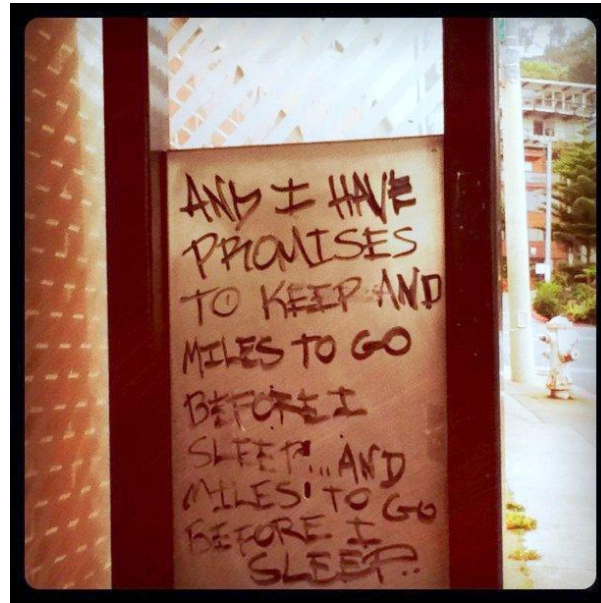 AND I HAVE
PROMISES
TO KEEP AND
MILES TO GO
BEFORE I
SLEEP...AND
MILES TO GO
BEFORE I
SLEEP..